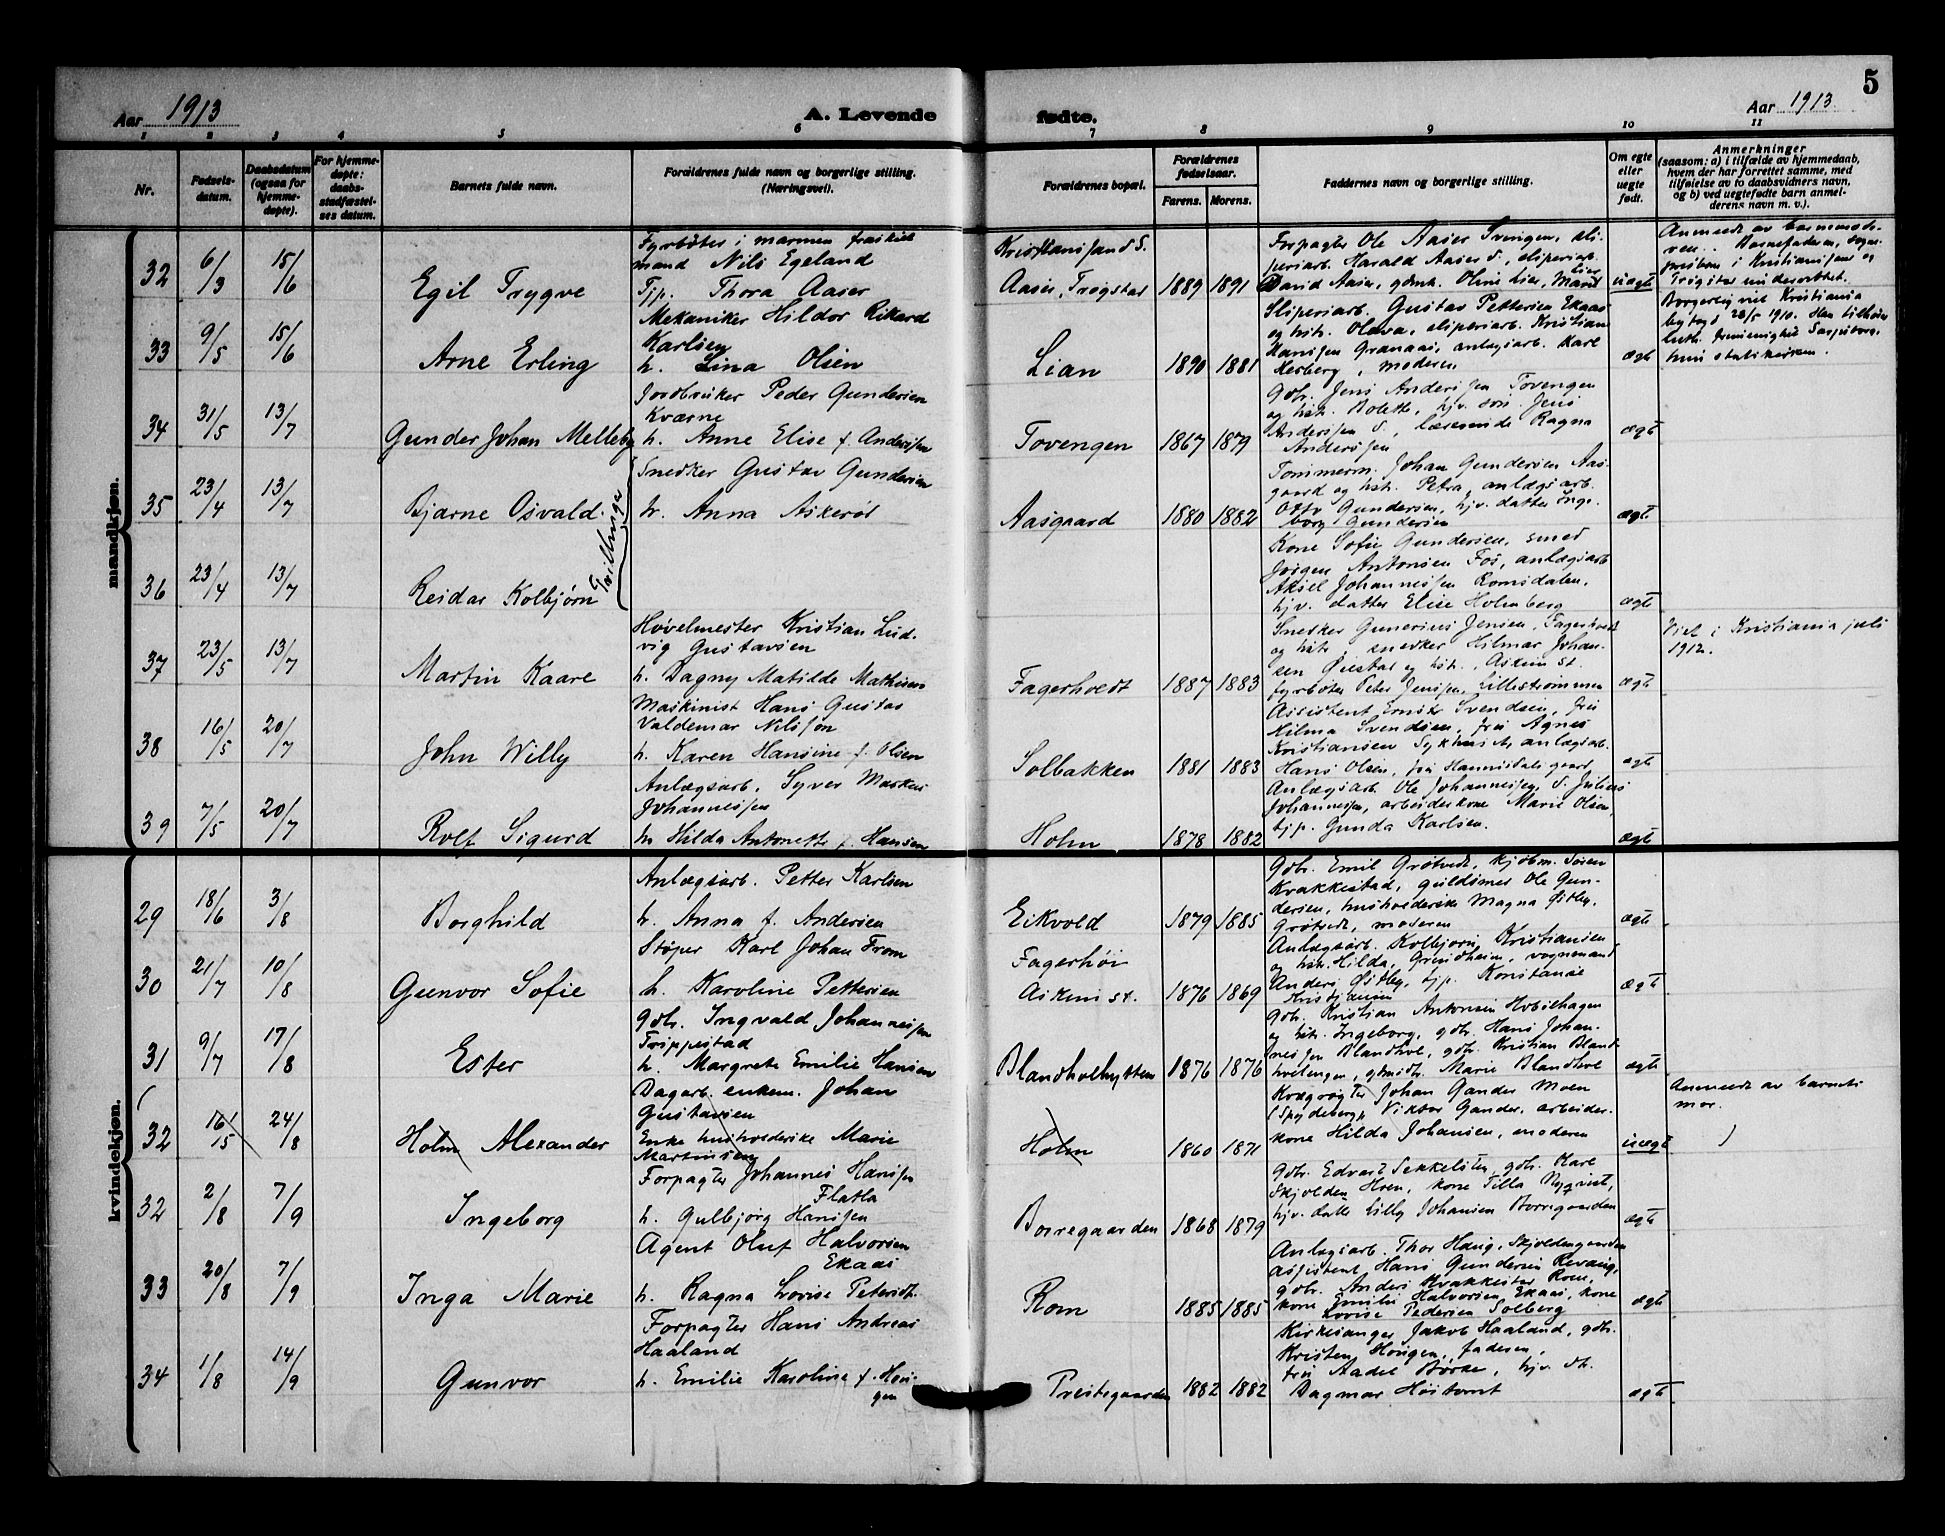 5
Aar 1913 A. Levende
fødte. Aar 1913
1 2 3 4 5 6
7 8 9 10 11
Nr. Fødsels-datum. Daabsdatum (ogsaa for hjemme-døpte). For hjemme-døpte: daabs-stadfæstel-ses datum. Barnets fulde navn. Forældrenes fulde navn og borgerlige stilling. (Næringsvei).
Forældrenes bopæl. Forældrenes fødselsaar. Farens. Morens. Faddernes navn og borgerlige stilling. Om egte eller uegte født. Anmerkninger (saasom: a) i tilfælde av hjemmedaab, hvem der har forrettet samme, med tilføielse av to daabsvidners navn, og b) ved uegtefødte barn anmel-derens navn m. v.).
mandkjøn.
32 6/3 15/6 Egil Trygve
Fyrbøter i marinen fraskilt
mand Nils Egeland
Tjp. Thora Aaser
Kristiansand S.
Aaser, Trøgstad 1889 1891
Forpagter Ole Aaser
uægte
33 9/5 15/6 Arne Erling
Mekaniker Hildor Rikard
Karlsen
h. Lina Olsen
Lian 1890 1881
Sliperiarb. Gustav Pettersen Ekaas
og hstr. Olava, sliperiarb. Kristian
Hansen Granaas, anlægsarb. Karl
moderen
ægte
Borgerlig viet Kristiania
34 31/5 13/7 Gunder Johan Melleby
Jordbruker Peder Gundersen
Kværne
h. Anne Elise f. Andersen
Tovengen 1867 1879
Gdbr. Jens Andersen Tovengen
og hstr. Bolette, hjv. søn Jens
Andersen S., læerinde Ragna
Andersen
ægte
35 23/4 13/7 Bjarne Osvald.
Tvillinger
Snedker Gustav Gundersen
h. Anna Askerød
Aasgaard 1880 1882
Tømmerm. Johan Gundersen Aas-
gaard og hstr. Petra, anlægsarb.
Otto Gundersen, hjv. datter Inge-
borg Gundersen
ægte
36 23/4 13/7 Reidar Kolbjørn
Kone Sofie Gundersen, smed
Jørgen Antonsen Fos, anlægsarb.
Aksel Johannessen Romsdalen,
hjv. datter Elise Holmberg
ægte
37 23/5 13/7 Martin Kaare
Høvelmester Kristian Lud-
vig Gustavsen
h. Dagny Matilde Mathisen
Fagerhvedt 1887 1883
Snedker Gunerius Jensen, Fagerhvedt
og hstr., snedker Hilmar Johan-
sen Ørstad og hstr., Askim st.
fyrbøter Peter Jensen, Lillestrømmen
ægte
Viet i Kristiania juli
1912.
38 16/5 20/7 John Willy
Maskinist Hans Gustav
Valdemar Nilssen
h. Karen Hansine f. Olsen
Solbakken 1881 1883
Assistent Ernst Svendsen, frk
Hilma Svendsen, frk Agnes
Kristiansen Sykhuset, anlægsarb.
Hans Olsen,
ægte
39 7/5 20/7 Rolf Sigurd
Anlægsarb. Syver Markus
Johannessen
h. Hilda Antonette f. Hansen
Holm 1878 1882
Anlægsarb. Ole Johannessen, S. Julius
Johannessen, arbeiderkone Marie Olsen,
tjp. Gunda Karlsen.
ægte
kvindekjøn.
29 18/6 3/8 Borghild
Anlægsarb. Petter Karlsen
h. Anna f. Andersen
Eikvold 1879 1885
Gdbr. Emil Grøtvedt, kjøbm. Søren
Kvakkestad, guldsmed Ole Gun-
dersen, husholderske Magna Østby,
Grøtvedt, moderen
ægte
30 21/7 10/8 Gunvor Sofie
Støper Karl Johan From
h. Karoline Pettersen
Fagerhøi
Askim st. 1876 1869
Anlægsarb. Kolbjørn Kristiansen
og hstr. Hilda, Grindheim, vognmand
Anders Østby, tjp. Konstanse
Kristiansen
ægte
31 9/7 17/8 Ester
Gdbr. Ingvald Johannessen
Trippestad
h. Margrete Emilie Hansen
Blandholhytten 1876 1876
Gdbr. Kristian Antonsen Hobilhagen
og hstr. Ingeborg, gdbr. Hans Johan-
nessen Blandhol, gdbr. Kristian Bland-
Marie Blandhol
ægte
32 16/15 24/8 Holm Alexander
Dagarb. enkem. Johan
Gustavsen
Enke husholderske Marie
Martinsen
Holm 1860 1871
Johan Gander Moen
(Spydeberg), Viktor Gander, arbeider-
kone Hilda Johansen, moderen
uægte
Anmeldt av barnets
mor.
32 2/8 7/9 Ingeborg
Forpagter Johannes Hansen
Flatla
h. Gulbjørg Hansen
Borregaarden 1868 1879
Gdbr. Edvart Sekkelsten, gdbr. Karl
Skjolden Hoen, kone Tilla Nyqvist,
hjv. datter Lilly Johansen Borregaarden
ægte
33 20/8 7/9 Inga Marie
Agent Oluf Halvorsen
Ekaas
h. Ragna Lovise Petersdt.
Rom 1885 1885
Anlægsarb. Thor Haug, Skjoldengaarden
Assistent Hans Gundersen Revaug,
gdbr. Anders Kvakkestad Rom,
kone Emilie Halvorsen Ekaas, kone
Lovise Pedersen Solberg
ægte
34 1/8 14/9 Gunvor
Forpagter Hans Andreas
Haaland
h. Emilie Karoline f. Hou-
gen
Prestegaarden 1882 1882
Kirkesanger Jakob Haaland, gdbr.
Kristen Hougen, faderen,
frk Aadel Børke, hjv. dt.
Dagmar Høitomt
ægte